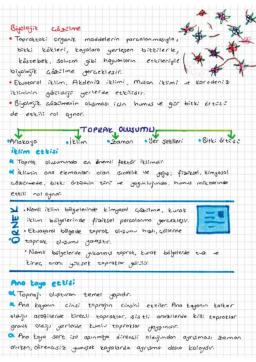 Biyolojik Çözülme
• Topraktaki organik maddelerin parçalanmasıyla,
bitki kökleri, kayalara yerleşen bitkilerle,
köstebek, solucan gibi hayvanların etkileriyle
biyolojik çözülme gerçekleşir.
• Ekvatoral iklim, Akdeniz iklimi, Muson iklimi ve Karadeniz
ikliminin görüldüğü yerlerde etkilidir.
• Biyolojik çözülmenin oluşması için humus ve gür bitki örtüsü
de etkili rol oynar.
TOPRAK OLUŞUMU
•Anakaya •İklim •Zaman •Yer şekilleri •Bitki örtüsü
İklim etkisi
Toprak oluşumunda en önemli faktör iklimdir.
İklimin ana elemanları olan sıcaklık ve yağış, fiziksel, kimyasal
çözülmede, bitki örtüsünün türü ve yaygınlığında, humus miktarında
etkili rol oynar.
ÖRNEK
• Nemli iklim bölgelerinde kimyasal çözülme, kurak
iklim bölgelerinde fiziksel parçalanma gerçekleşir.
• Ekvatoral bölgede toprak oluşumu hızlı, çöllerde
toprak oluşumu yavaştır.
• Nemli bölgelerde yıkanmış toprak, kurak bölgelerde tuz ve
kireç oranı yüksek topraklar görülür.
Ana kaya etkisi
Toprağı oluşturan temel yapıdır.
Ana kayanın cinsi toprağın cinsini etkiler. Ana kayanın kalker
olduğu arazilerde kireçli topraklar, şistli arazilerde killi topraklar
granit olduğu yerlerde kumlu topraklar yaygındır.
Ana kaya sert ise aşınmaya dirençli olduğundan ayrışması zaman
alırken, dirençsiz yumuşak kayalarda ayrışma daha kolaydır.